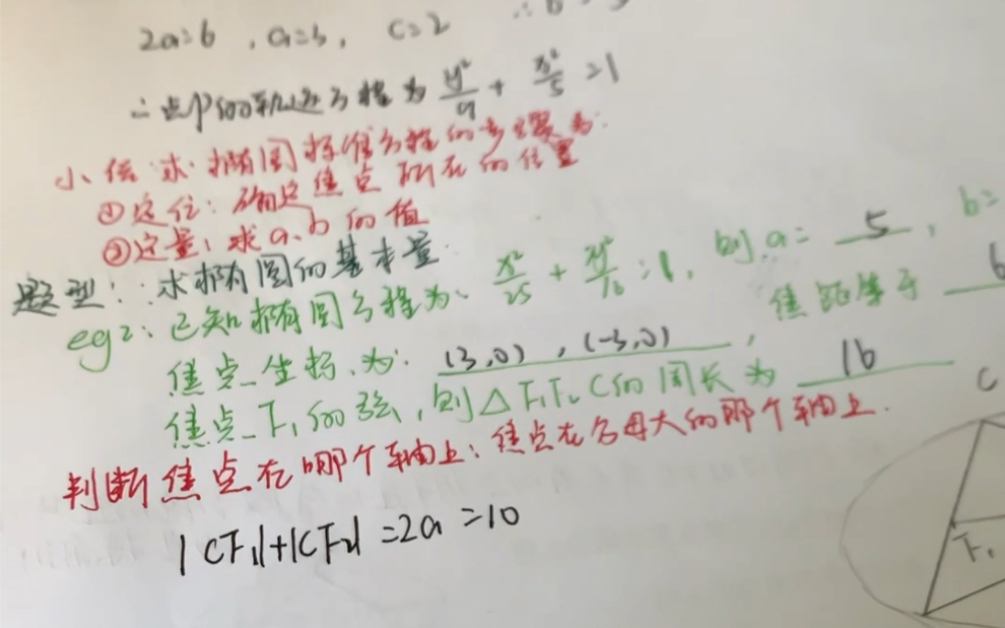 2a=6 , a=3, C=2 ∴b
∴点P的轨迹方程为 y²/9 + x²/5 =1
小结:求椭圆标准方程的步骤为:
①定位:确定焦点所在的位置
②定量:求a、b的值
题型:求椭圆的基本量.
eg2:已知椭圆方程为: x²/25 + y²/16 =1, 则a= 5 , b=
焦点坐标为: (3,0) , (-3,0) , 焦距等于 6
焦点F₁的弦,则△F₁F₂C的周长为 16
判断焦点在哪个轴上:焦点在分母大的那个轴上.
|CF₁|+|CF₂|=2a=10
C
F₁